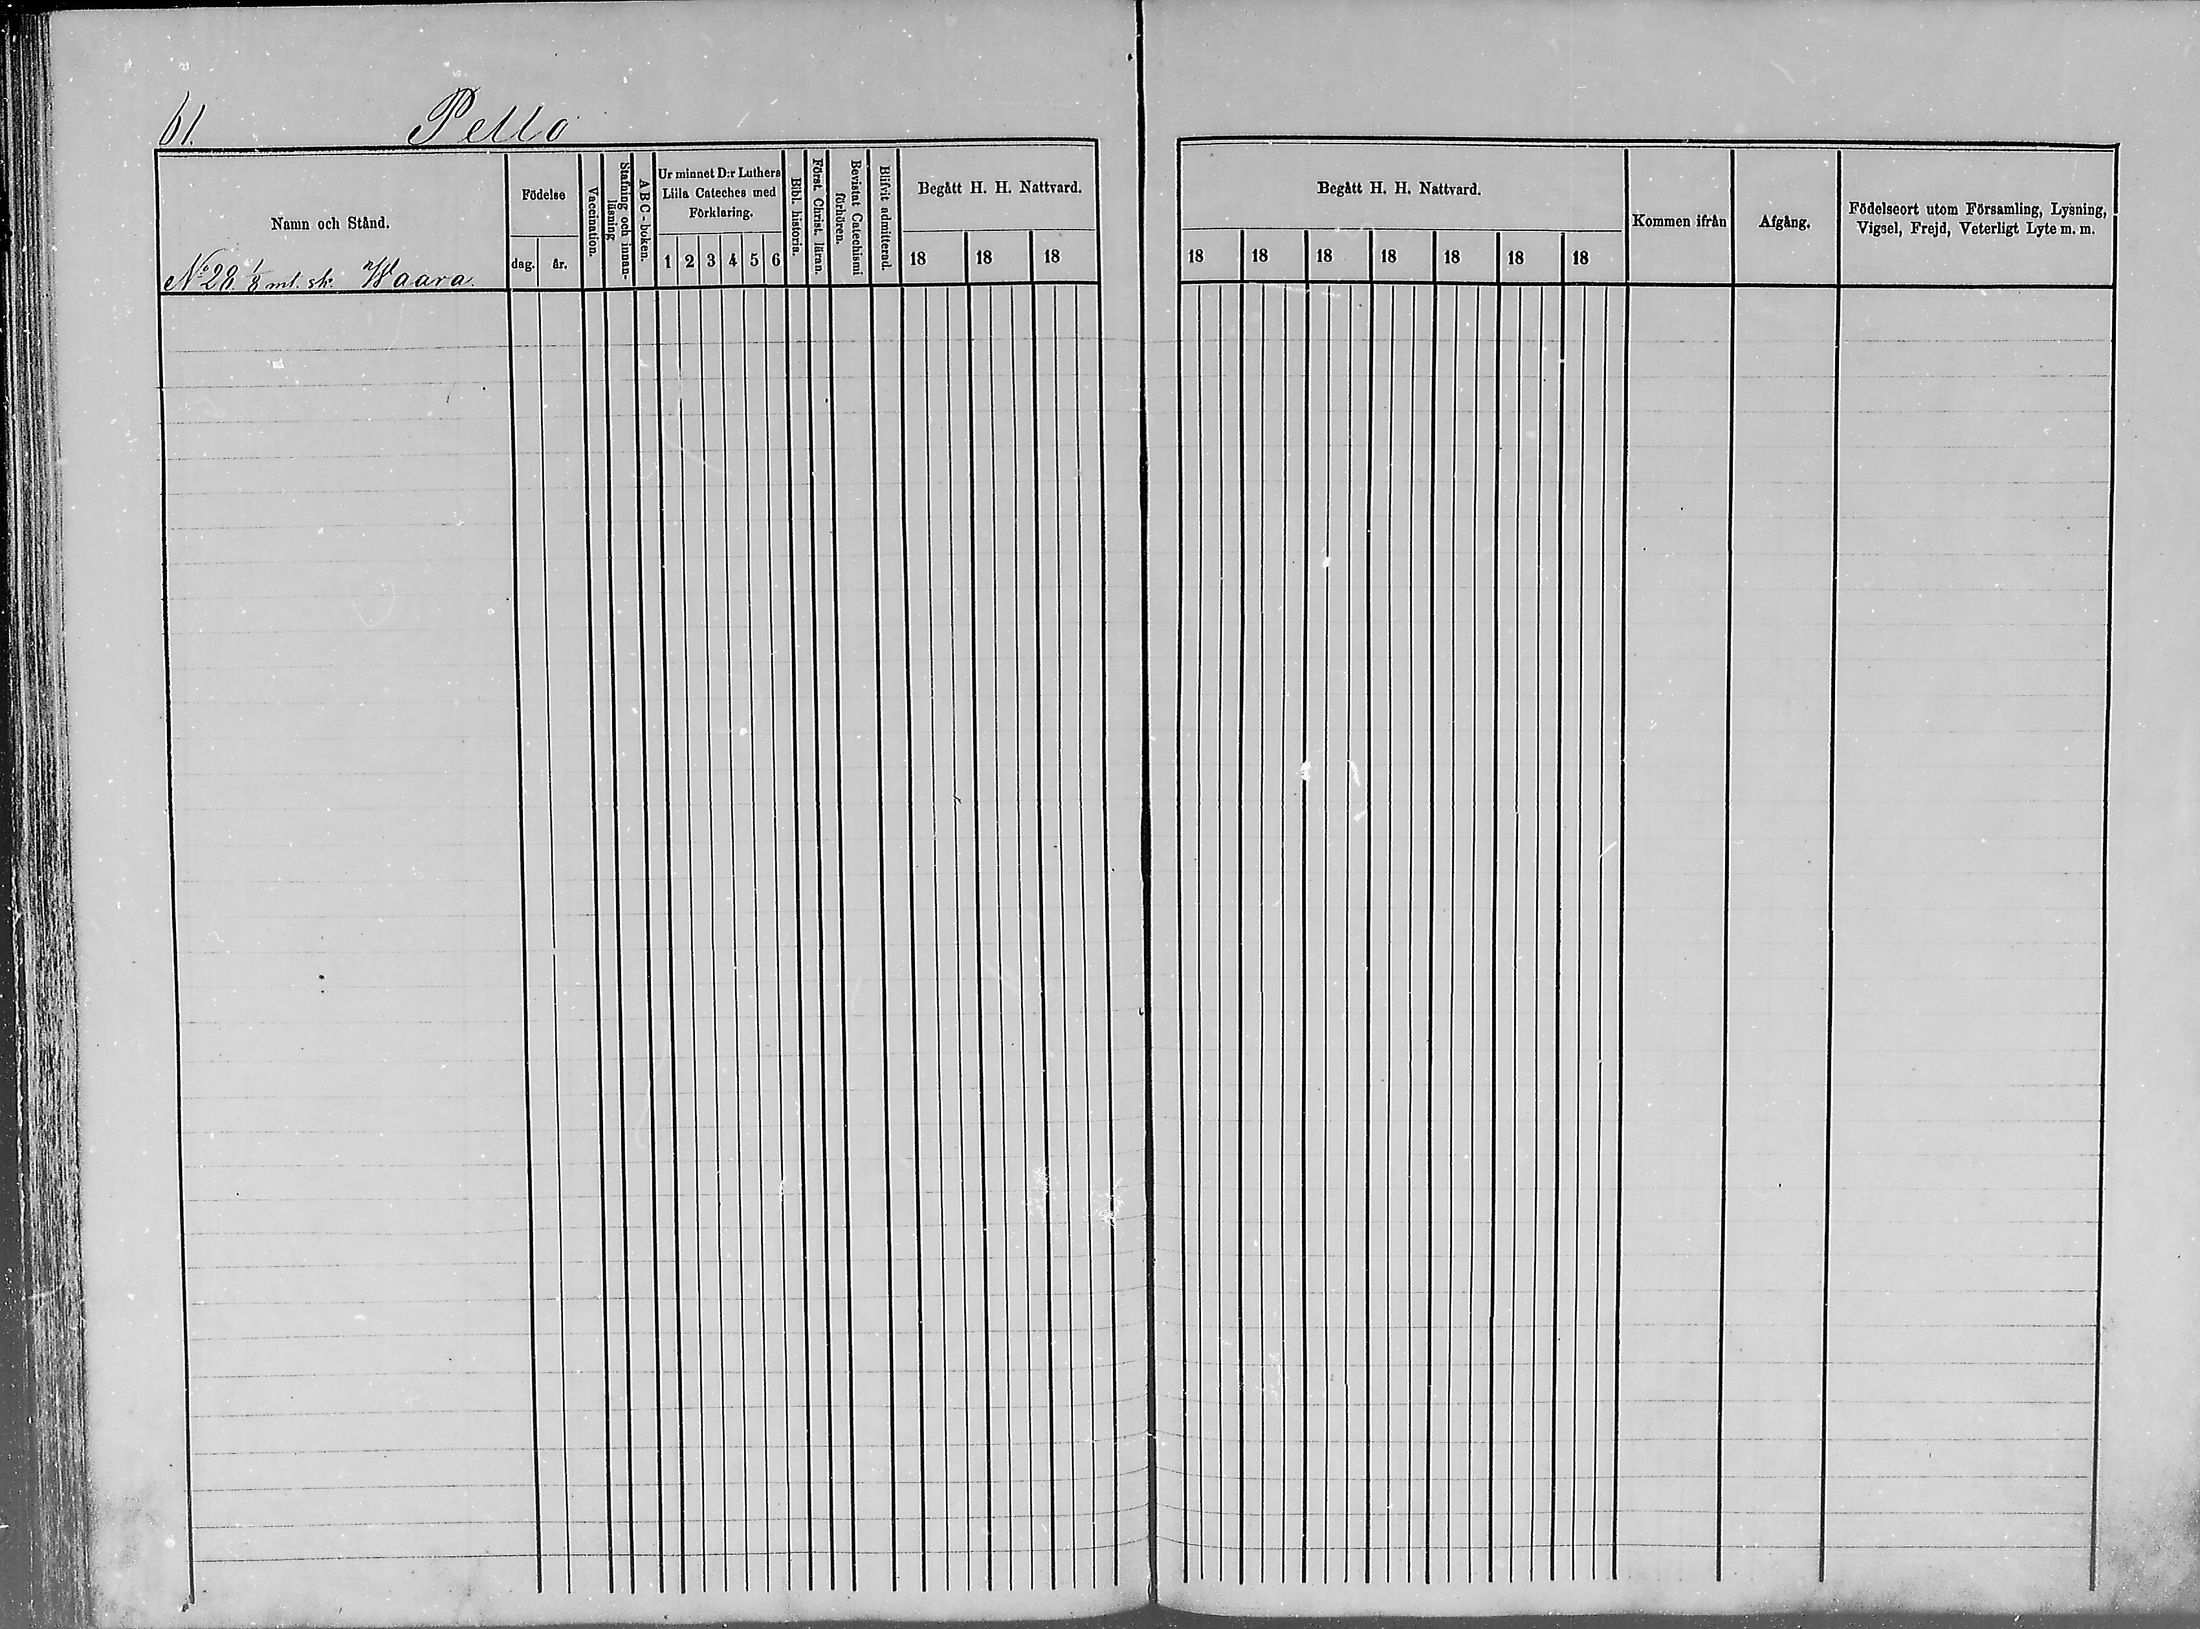 61.
Pello
Namn och Stånd.
No 28. 1/8 mt. sk. Waara.
Födelse
dag.
år.
Vaccination.
Stafning och innan-
läsning
ABC-boken.
Ur minnet D:r Luthers
Lilla Cateches med
Förklaring.
1 2 3 4 5 6
Bibl. historia.
Först. Christ. läran.
Bevistat Catechismi
förhören.
Blifvit admitterad.
Begått H. H. Nattvard.
18 18 18
Begått H. H. Nattvard.
18 18 18 18 18 18 18
Kommen ifrån
Afgång.
Födelseort utom Församling, Lysning,
Vigsel, Frejd, Veterligt Lyte m. m.